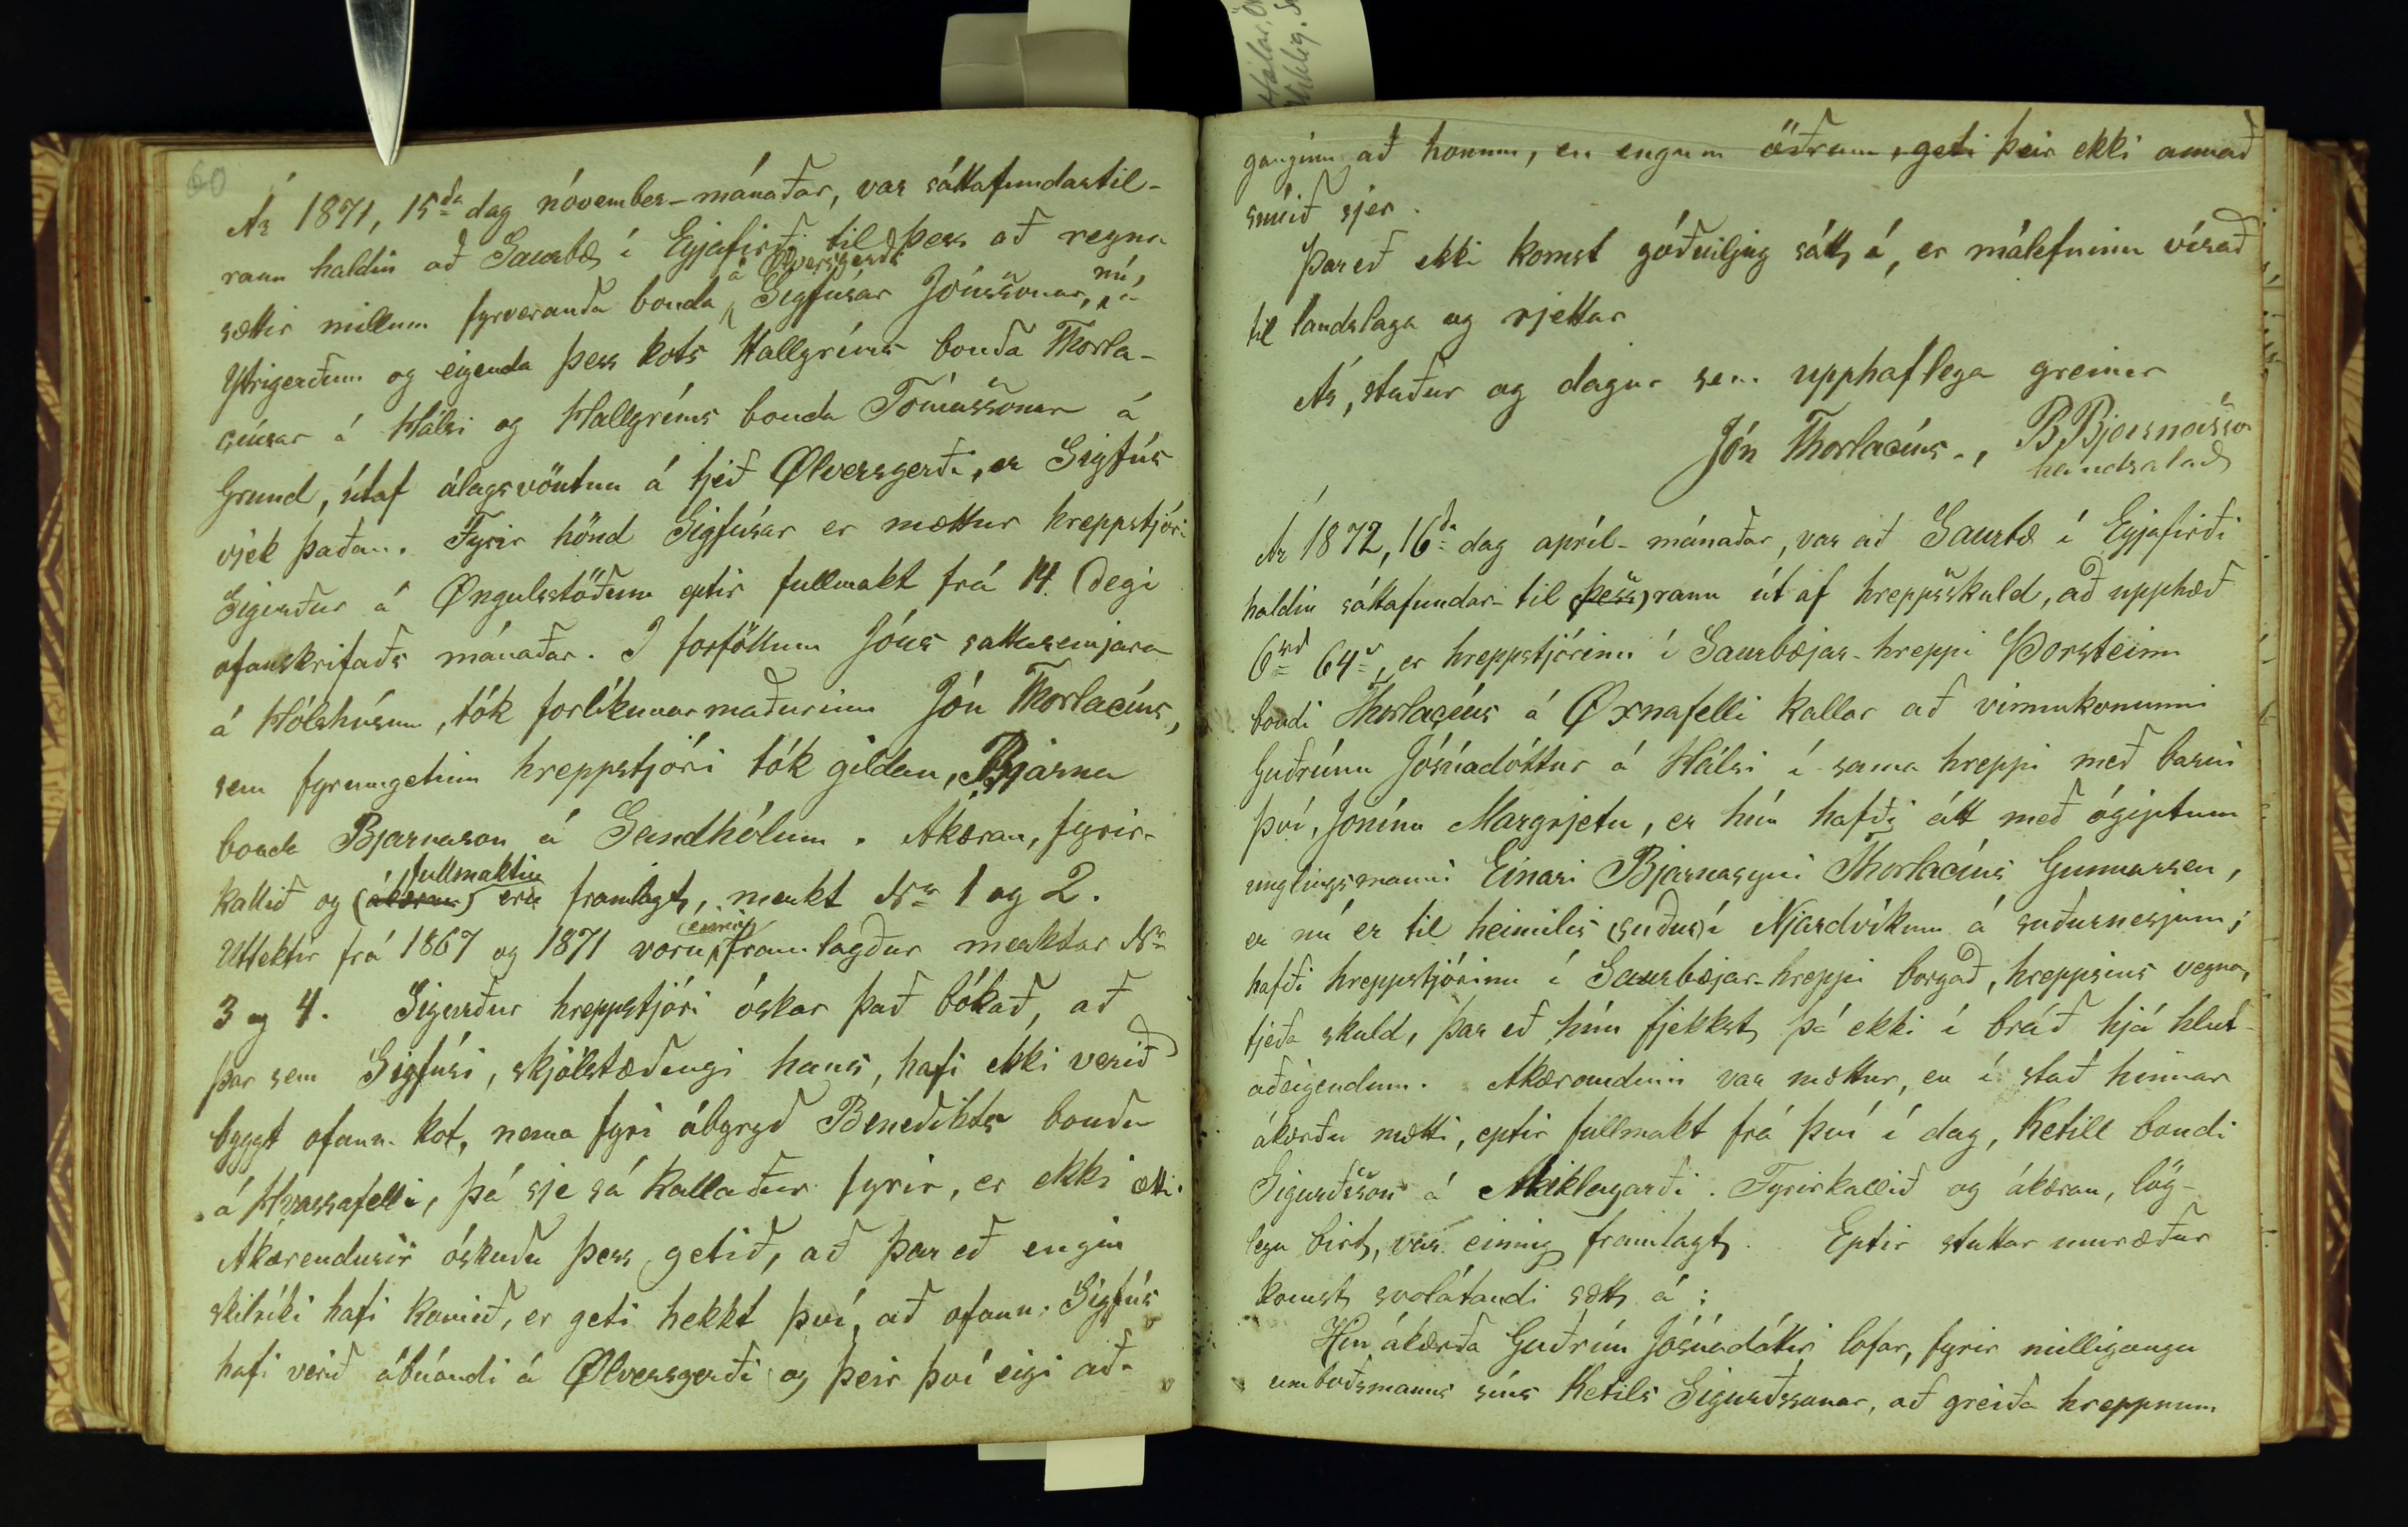 60
Ár 1871, 15da dag nóvember-mánaðar, var sáttafundartil-
raun haldin að Saurbæ í Eyjafirði til þess að reyna
sættir millum fyrveranda bonda á Ølversgerði Sigfúsar Jónssonar, nú á
Ytrigerðum og eigenda þess kots Hallgríms bonda Thorla-
cíusar á Hálsi og Hallgríms bonda Tómassonar á
Grund, útaf álagsvöntun á tjeð Ølversgerði, er Sigfús
vjek þaðan. Fyrir hönd Sigfúsar er mættur hreppstjóri
Sigurður á Øngulsstöðum eptir fullmakt frá 14. degi
ofanskrifaðs mánaðar. I forföllum Jóns sattasemjara
á Hólshúsum, tók forlíkunarmaðurinn Jón Thorlacíus,
sem fyrumgetinn hreppstjóri tók gildan, Bjarna
bonda Bjarnason á Sandhólum. Ákæran, fyrir-
kallið og (ákæran) fullmaktin eru framlagt, merkt Nr. 1 og 2.
Uttektir frá 1867 og 1871 voru (einnig) framlagðar merktar Nr.
3 og 4. Sigurður hreppstjóri óskar það bókað, að
þar sem Sigfúsi, skjólstæðingi hans, hafi ekki verið
byggt ofann. kot, nema fyri ábyrgð Benedikts bonda
á Hvassafelli, þá sje sá kallaður fyrir, er ekki ætti.
Akærendurir óskuðu þess getið, að þar eð engin
skilríki hafi komið, er geti hekkt því, að ofann. Sigfús
hafi verið ábúandi á Ølversgerði og þeir því eigi að-
ganginn að honum, en engum öðrum, geti þeir ekki annað
snúið sjer.
Þareð ekki komst góðviljug sátt á, er málefninu vísað
til landslaga og rjettar
Ár, staður og dagur sem upphaflega greinir
Jón Thorlacíus., B Bjarnason
handsalað
Ár 1872, 16da dag apríl-mánaðar, var að Saurbæ í Eyjafirði
haldin sáttafundar-til (þess) raun út af hreppsskuld, að upphæð
6rd 64s, er hreppstjórinn í Saurbæjar-hreppi Þorsteinn
bondi Thorlacíus á Øxnafelli kallar að vinnukonunni
Guðrúnu Jósúadóttur á Hálsi í sama hreppi með barni
því, Jonínu Margrjetu, er hún hafði átt með ógiptum
unglingsmanni Einari Bjarnasyni Thorlacíus Gunnarsen,
er nú er til heimilis (suður) í Njardvíkum á suðurnesjum;
hafði hreppstjórinn í Saurbæjar-hreppi borgað, hreppsins vegna,
tjeða skuld, þar eð hún fjekkst þá ekki í bráð hjá hlut-
aðeigendum. Akærandinn var mættur, en í stað hinnar
ákærðu mætti, eptir fullmakt frá því í dag, Ketill bondi
Sigurðsson á Miklagarði. Fyrirkallið og ákæran, lög-
lega birt, var einnig framlagt. Eptir stuttar umræður
komst svolátandi sætt á:
Hin ákærða Guðrún Jósúadóttir lofar, fyrir milligangu
umboðsmanns síns Ketils Sigurðssonar, að greiða hreppnum